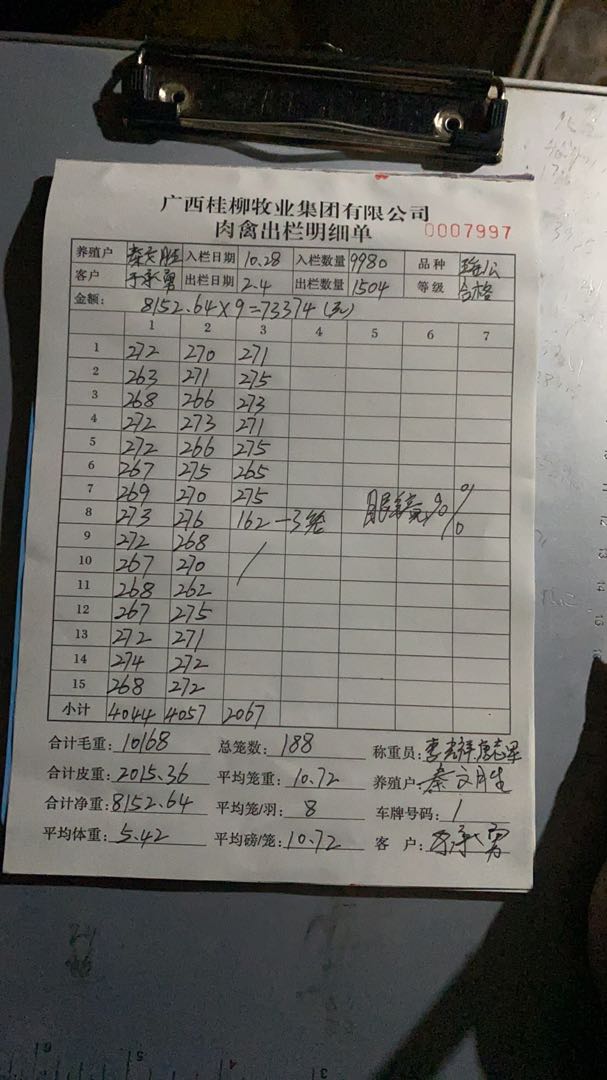 广西桂柳牧业集团有限公司
肉禽出栏明细单 0007997
养殖户 秦文胜 入栏日期 10.28 入栏数量 9980 品种
客户 于承勇 出栏日期 2.4 出栏数量 1504 等级 合格
金额: 8152.64×9=73374(元)
1 2 3 4 5 6 7
1 272 270 271
2 263 271 275
3 268 266 273
4 272 273 271
5 272 266 275
6 267 275 265
7 269 270 275
8 273 276 162 —3笼
9 272 268
10 267 270 /
11 268 262
12 267 275
13 272 271
14 274 272
15 268 272
小计 4044 4057 2067
合计毛重: 10168 总笼数: 188 称重员:
合计皮重: 2015.36 平均笼重: 10.72 养殖户: 秦文胜
合计净重: 8152.64 平均笼/羽: 8 车牌号码: 1
平均体重: 5.42 平均磅/笼: 10.72 客户: 于承勇